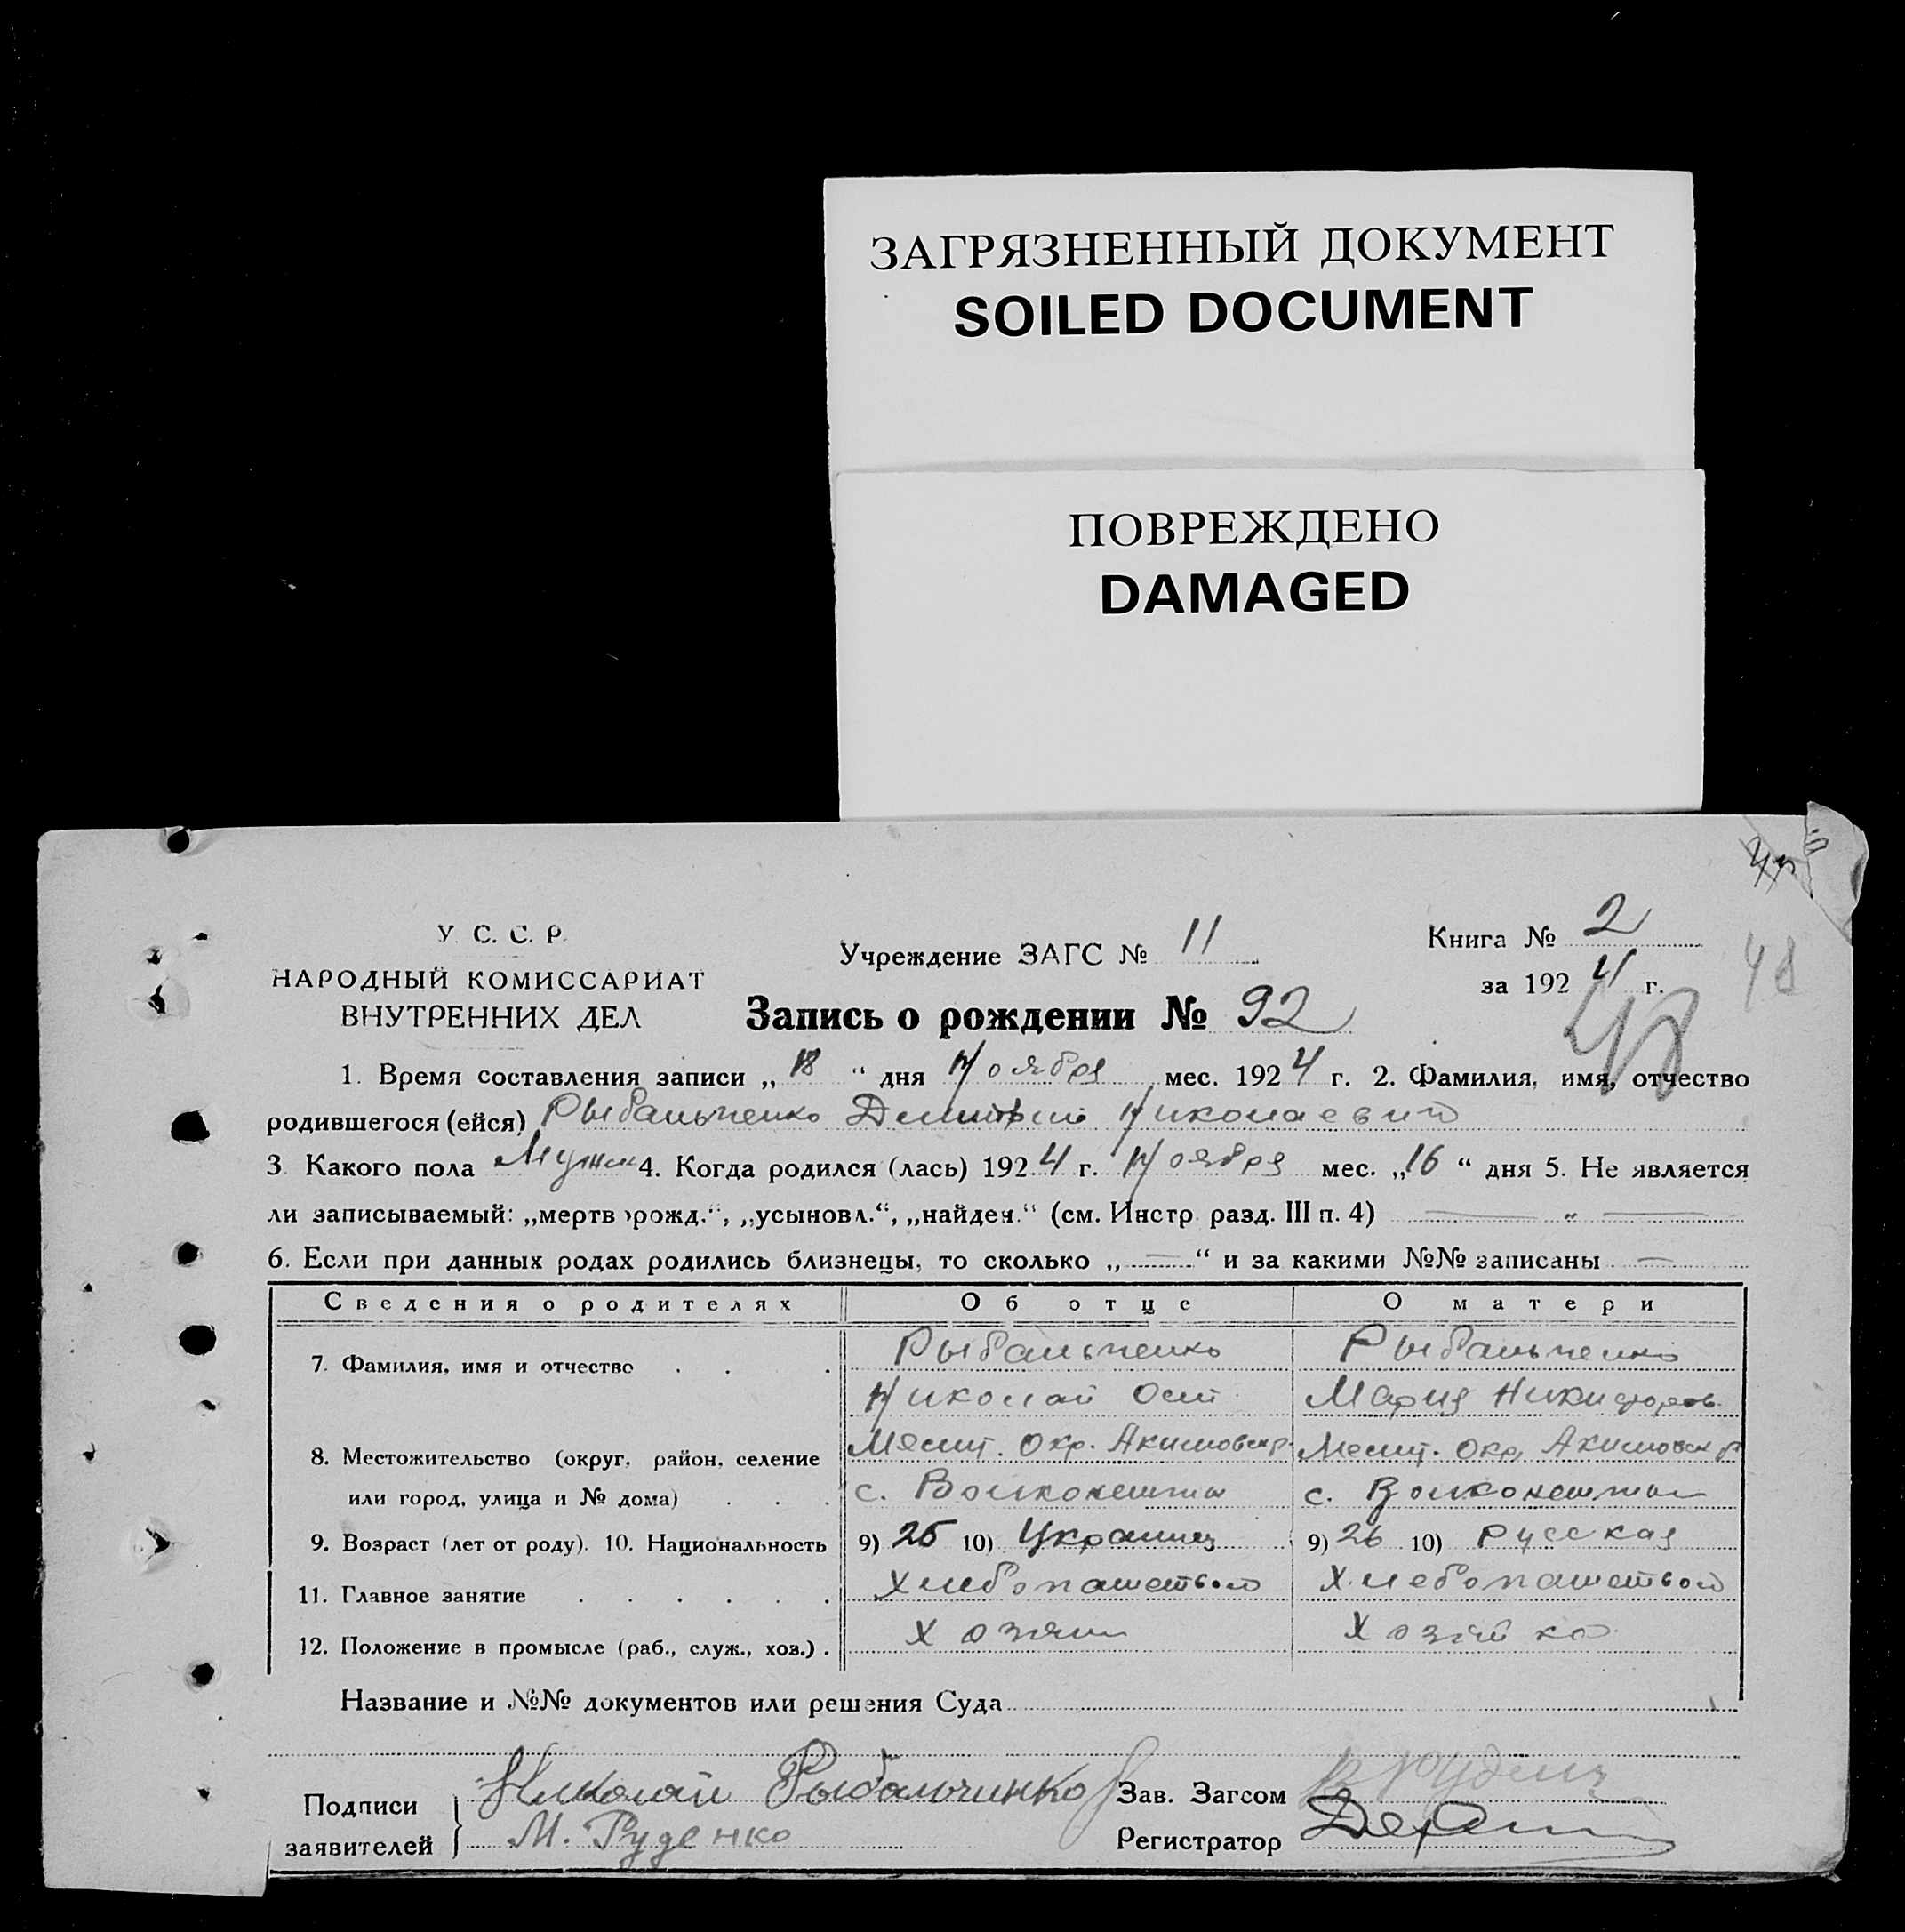 ЗАГРЯЗНЕННЫЙ ДОКУМЕНТ
SOILED DOCUMENT
ПОВРЕЖДЕНО
DAMAGED
У. С. С. Р.
НАРОДНЫЙ КОМИССАРИАТ
ВНУТРЕННИХ ДЕЛ
Учреждение ЗАГС № 11
Книга № 2
за 1924 г.
48
48
Запись о рождении № 92
1. Время составления записи „18“ дня Ноября мес. 1924 г. 2. Фамилия, имя, отчество
родившегося (ейся) Рыбальченко Дмитрий Николаевич
3 Какого пола Мужск 4. Когда родился (лась) 1924 г. Ноября мес. „16“ дня 5. Не является
ли записываемый: „мертворожд.“, „усыновл.“, „найден.“ (см. Инстр. разд. III п. 4) — „ —
6. Если при данных родах родились близнецы, то сколько „—“ и за какими №№ записаны —
Сведения о родителях Об отце О матери
7. Фамилия, имя и отчество Рыбальченко Рыбальченко
Николай Осип Мария Никифоров.
8. Местожительство (округ, район, селение Мелит. Окр. Акимовск р. Мелит. Окр. Акимовск р
или город, улица и № дома) с. Волконешты с. Волконешты
9. Возраст (лет от роду). 10. Национальность 9) 25 10) Украинец 9) 26 10) Русская
11. Главное занятие Хлебопашеством Хлебопашеством
12. Положение в промысле (раб., служ., хоз.) Хозяин Хозяйка
Название и №№ документов или решения Суда
Подписи заявителей Николай Рыбальчинко
М. Руденко
Зав. Загсом
Регистратор